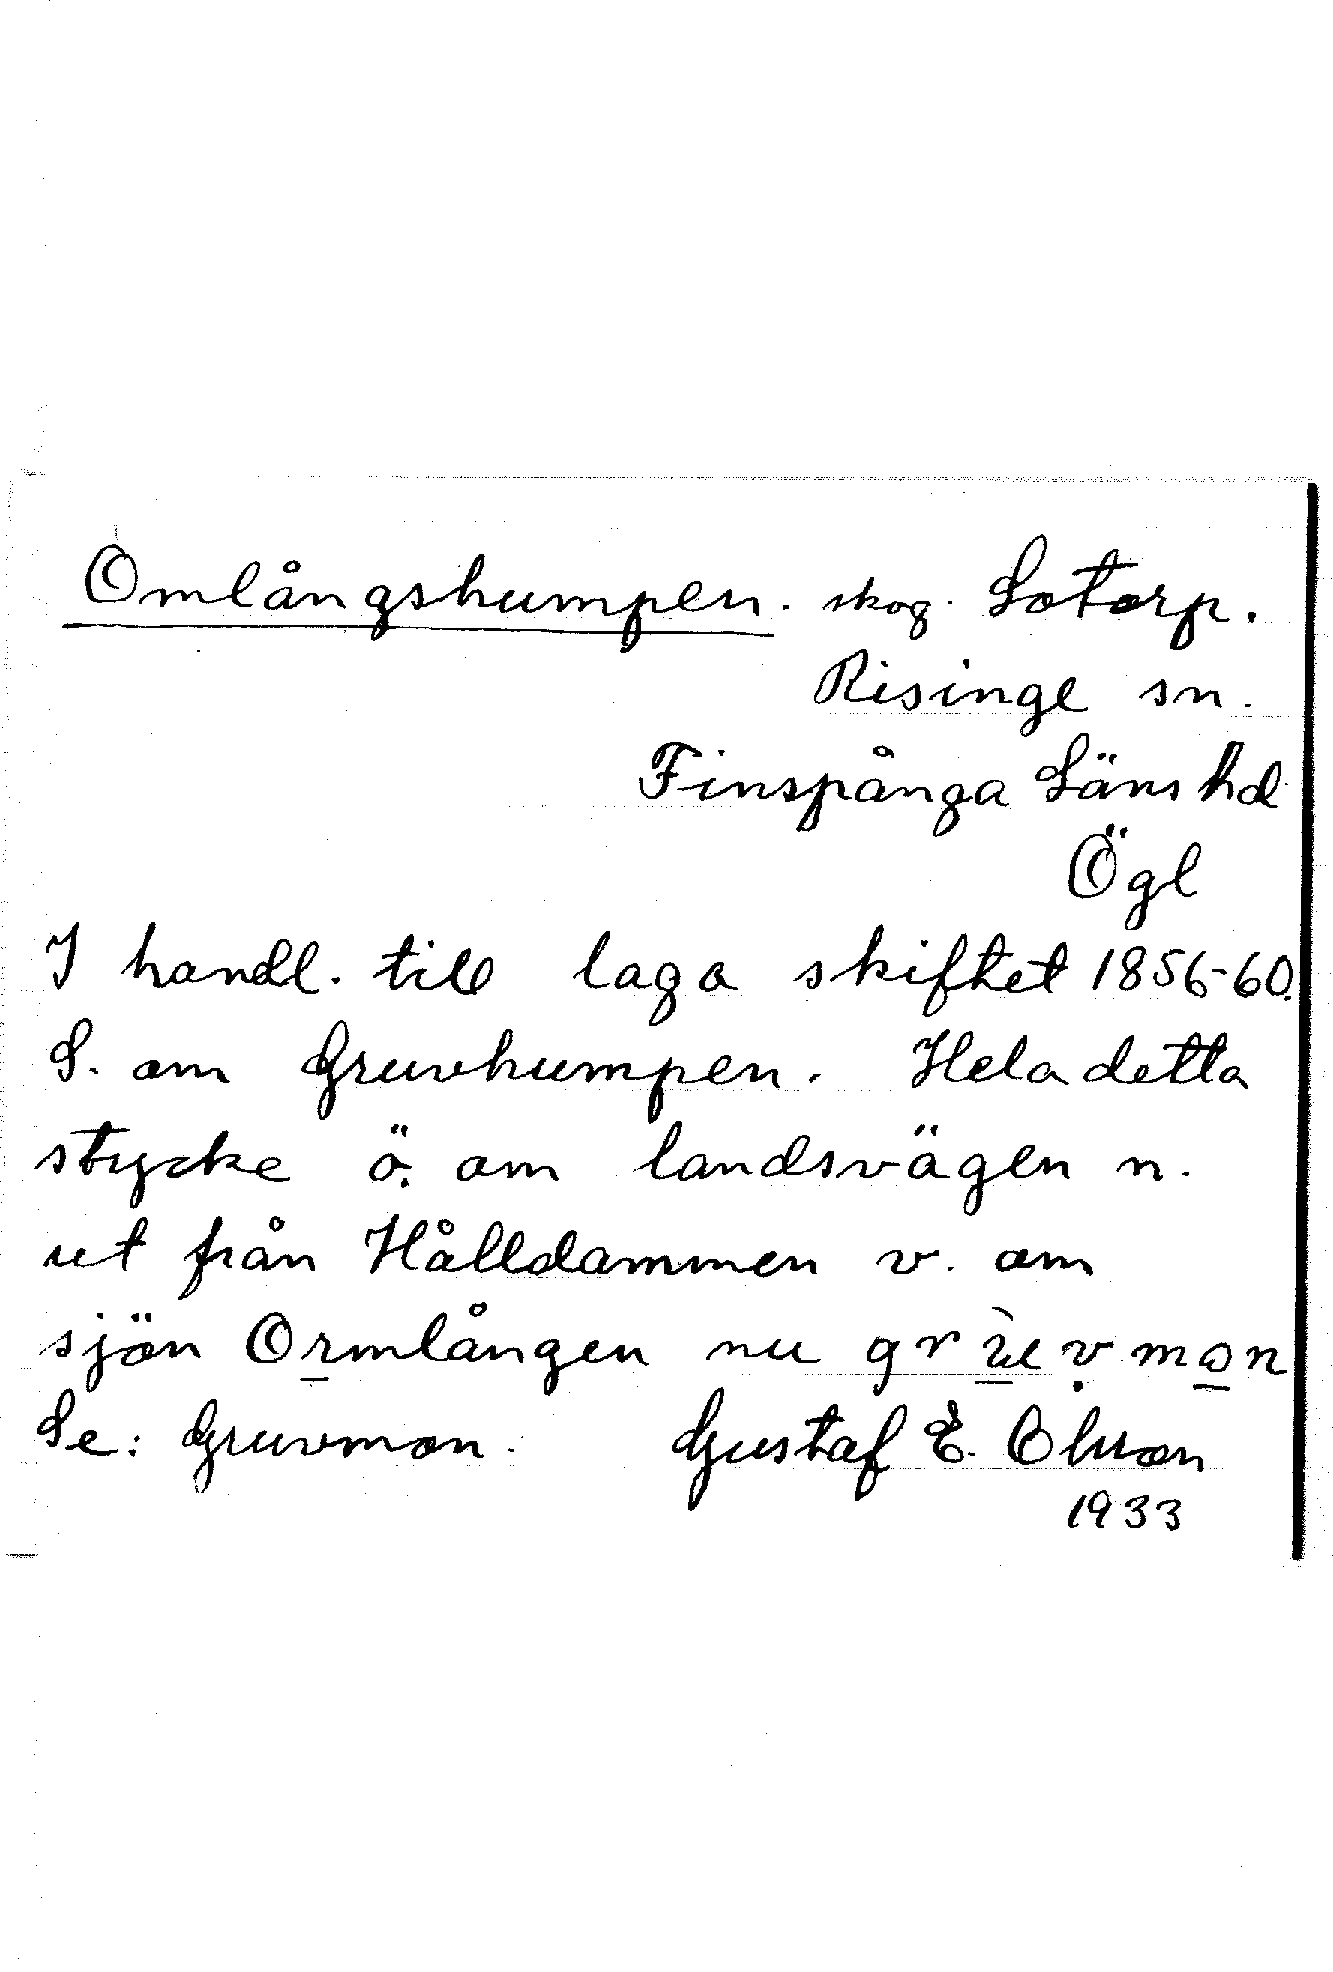 Omlångshumpen. skog. Lotorp.
Risinge sn.
Finspånga Läns hd
Ögl
I handl. till laga skiftet 1856-60.
S. om Gruvhumpen. Hela detta
stycke ö. om landsvägen n.
ut från Hålldammen v. om
sjön Ormlången nu grùvmon
Se: Gruvmon. Gustaf E. Olsson
1933